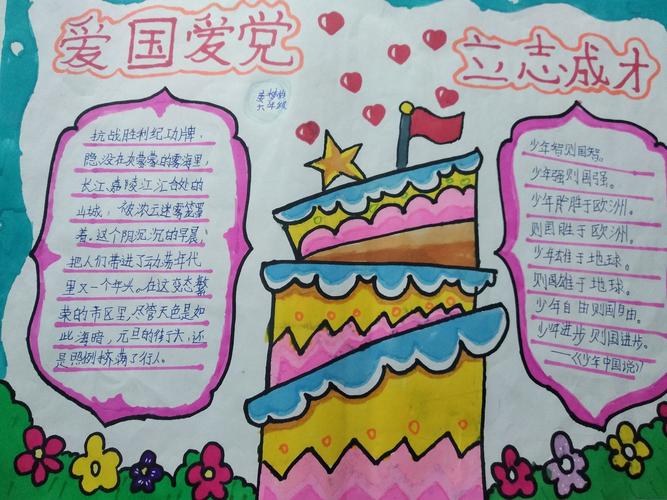 爱国爱党
立志成才
六年级
抗战胜利纪功牌,
隐没在灰蒙蒙的雾海里,
长江、嘉陵江汇合处的
山城,被浓云迷雾笼罩
着。这个阴沉沉的早晨,
把人们带进了动荡年代
里又一个年头。在这变态繁
荣的市区里,尽管天色是如
此海暗,元旦的街头,还
是照例挤满了行人。
少年智则国智。
少年强则国强。
少年胜于欧洲。
则国胜于欧洲。
少年雄于地球。
则国雄于地球。
少年自由则国自由。
少年进步则国进步。
——《少年中国说》